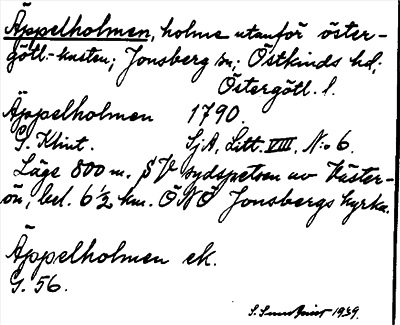 Äppelholmen, holme utanför öster-
götl.-kusten; Jonsberg sn; Östkinds hd;
Östergötl. l.
Äppelholmen 1790.
G. Klint. SjA, Litt. VIII, No 6.
Läge 800 m. SV sydspetsen av Väster-
ön, bel. 6 1/2 km. ÖNÖ Jonsbergs kyrka.
Äppelholmen ek.
G. 56.
S. 1939.